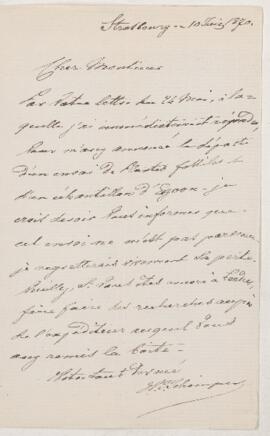 Strasbourg 10 Juin 1870.
Cher Monsieur
Par Votre lettre du 24 Mai, à la
quelle j'ai immédiatement répondu,
Vous m'avez annoncé le départ
d'un envoi de plantes fossiles et
d'un échantillon d'Eozoon. je
crois devoir Vous informer que
cet envoi ne m'est pas parvenu.
je regretterais vivement sa perte.
Veuillez, si Vous êtes encore à Londres,
faire faire des recherches auprès
de l'expéditeur auquel Vous
avez remis la boîte.
Votre tout dévoué
W. Schimper